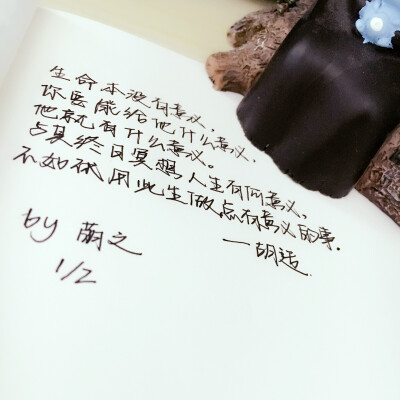 生命本没有意义,
你要能给他什么意义,
他就有什么意义。
与其终日冥想人生有何意义,
不如试用此生做点有意义的事.
—胡适.
by
1/2